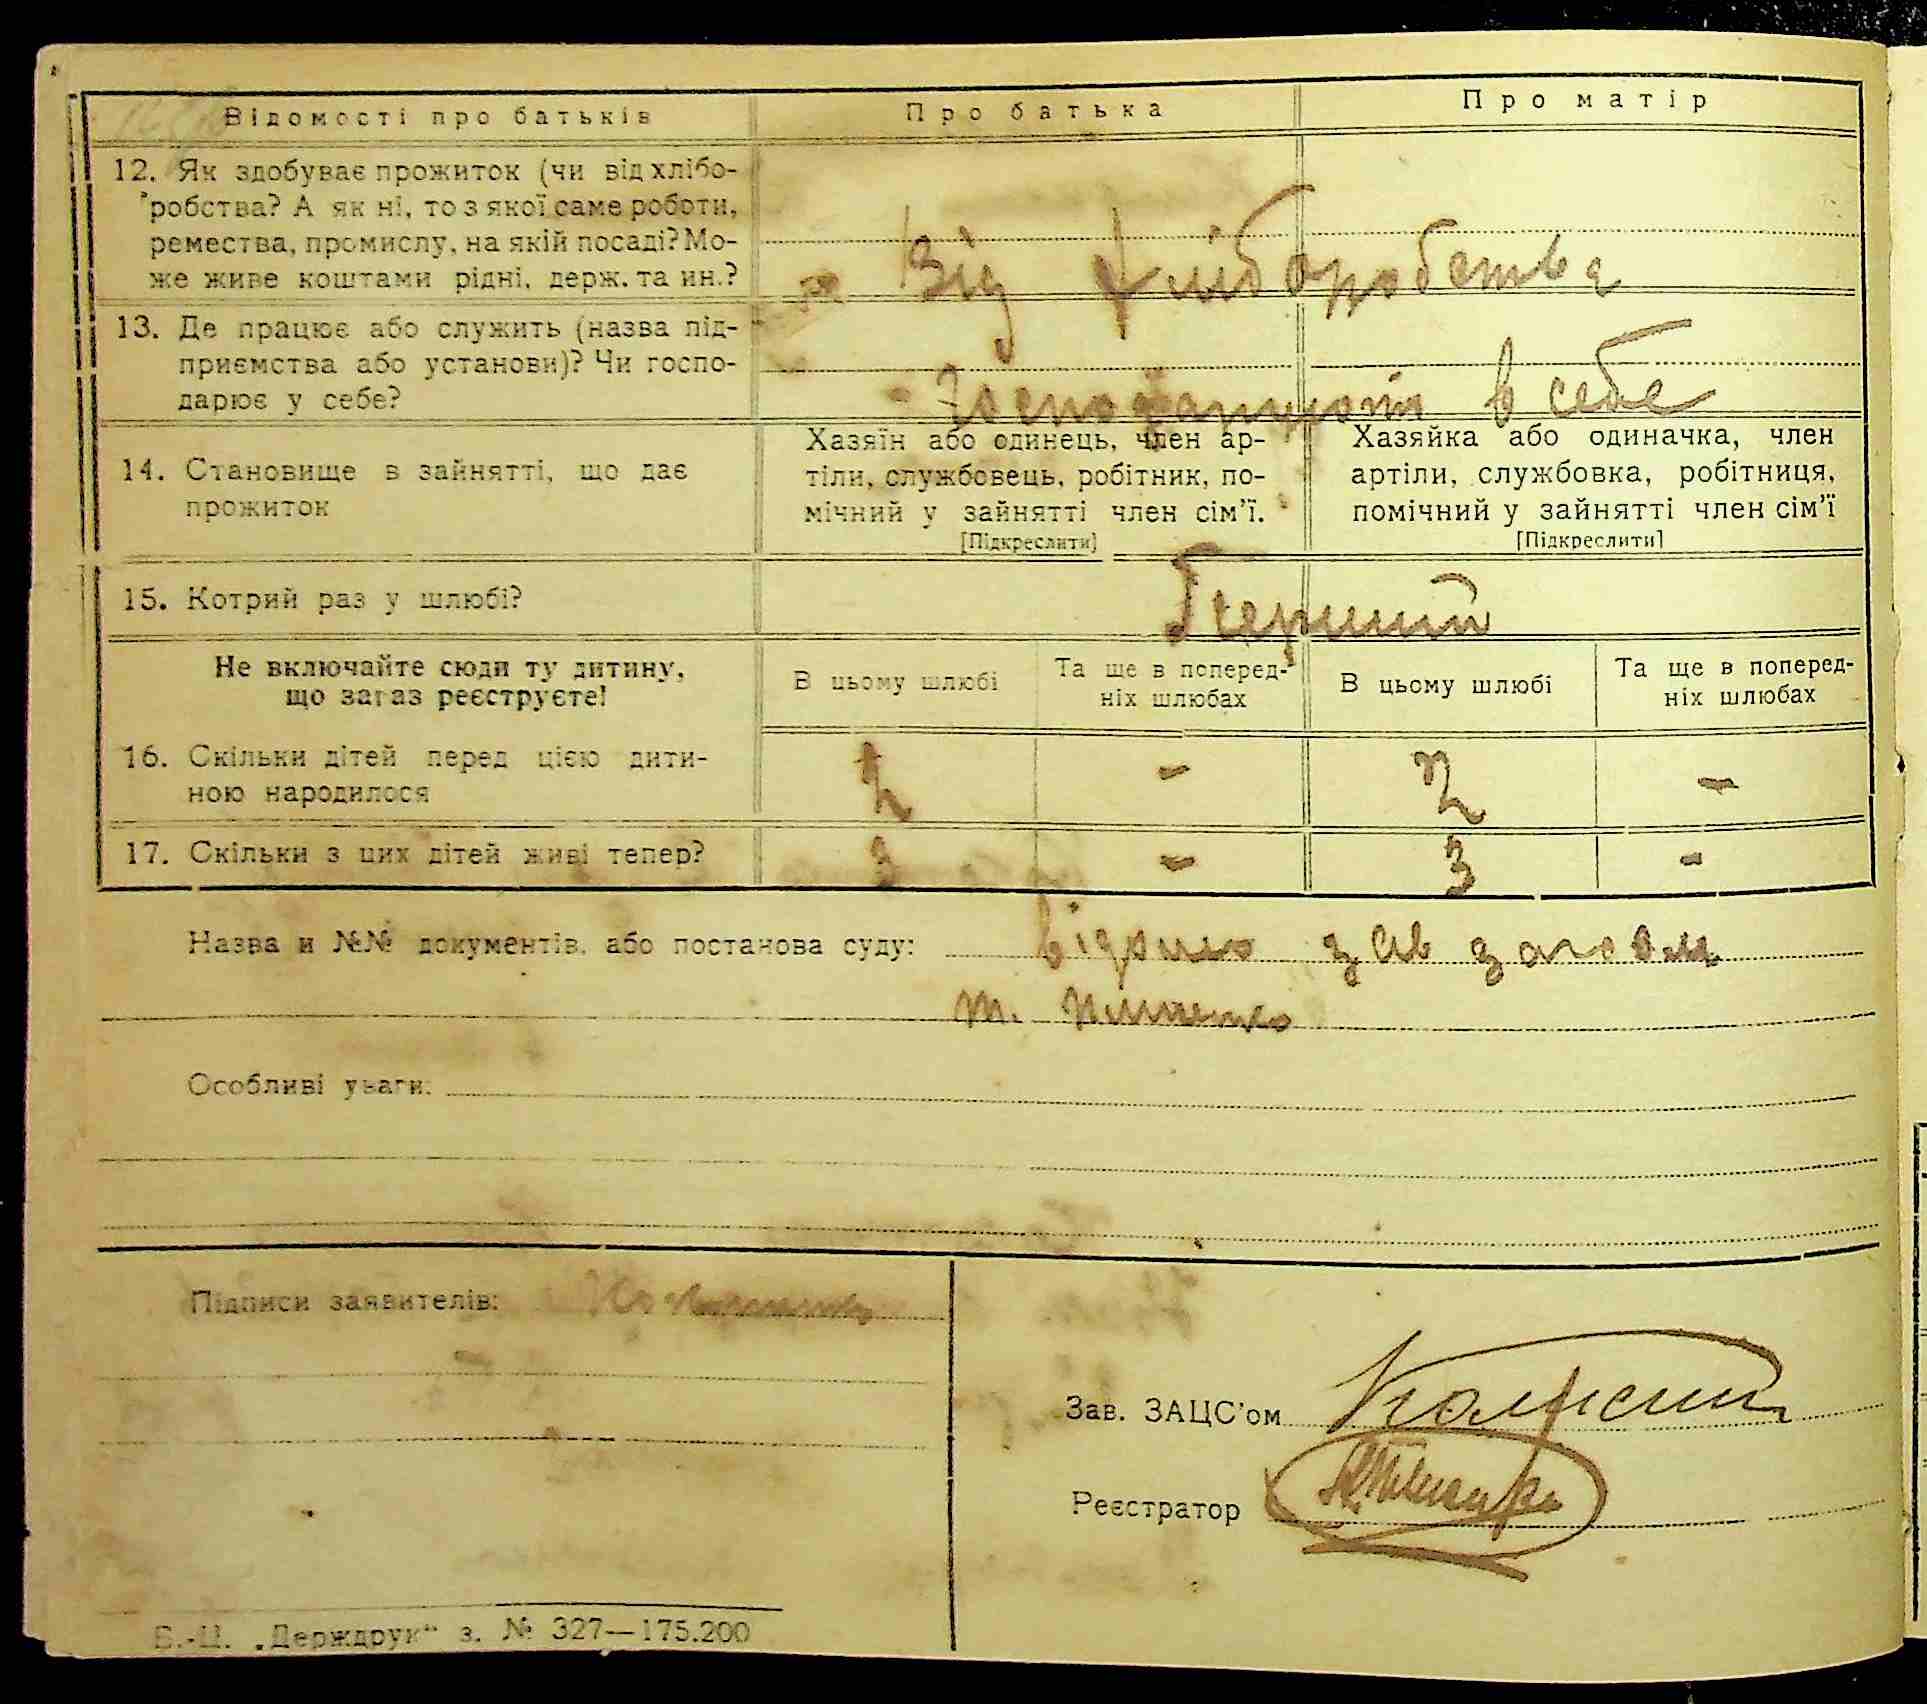 Відомості про батьків
Про батька
Про матір
12. Як здобуває прожиток (чи від хлібо-
робства? А як ні, то з якої саме роботи,
ремества, промислу, на якій посаді? Мо-
же живе коштами рідні, держ. та ин.?
Від хліборобства
13. Де працює або служить (назва під-
приємства або установи)? Чи госпо-
дарює у себе?
Господарюють в себе
14. Становище в зайнятті, що дає
прожиток
Хазяїн або одинець, член ар-
тіли, службовець, робітник, по-
мічний у зайнятті член сім'ї.
[Підкреслити]
Хазяйка або одиначка, член
артіли, службовка, робітниця,
помічний у зайнятті член сім'ї
[Підкреслити]
15. Котрий раз у шлюбі?
Перший
Не включайте сюди ту дитину,
що зараз реєструєте!
В цьому шлюбі
Та ще в поперед-
ніх шлюбах
В цьому шлюбі
Та ще в поперед-
ніх шлюбах
16. Скільки дітей перед цією дити-
ною народилося
- -
17. Скільки з цих дітей живі тепер?
3 - 3 -
Назва и №№ документів, або постанова суду:
відомо зав загсом
т.
Особливі уваги:
Підписи заявителів:
Зав. ЗАЦС'ом
Реєстратор
Б.-Ц. „Держдрук" з. № 327—175.200